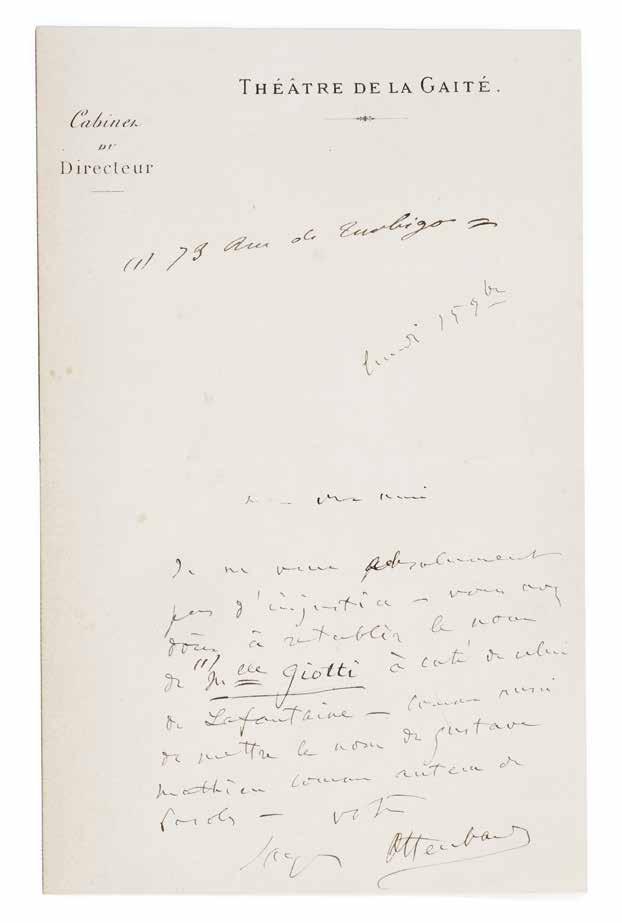 THÉÂTRE DE LA GAITÉ.
Cabinet
DU
Directeur
(1) 73 Rue de Turbigo =
lundi 15 9bre
mon ami
Je ne veux absolument
pas d'injustice – vous avez
donc à rétablir le nom
de (1) Melle Giotti à coté de celui
de Lafontaine – comme aussi
de mettre le nom de gustave
mathieu comme auteur de
Parole – votre
Jacques Offenbach